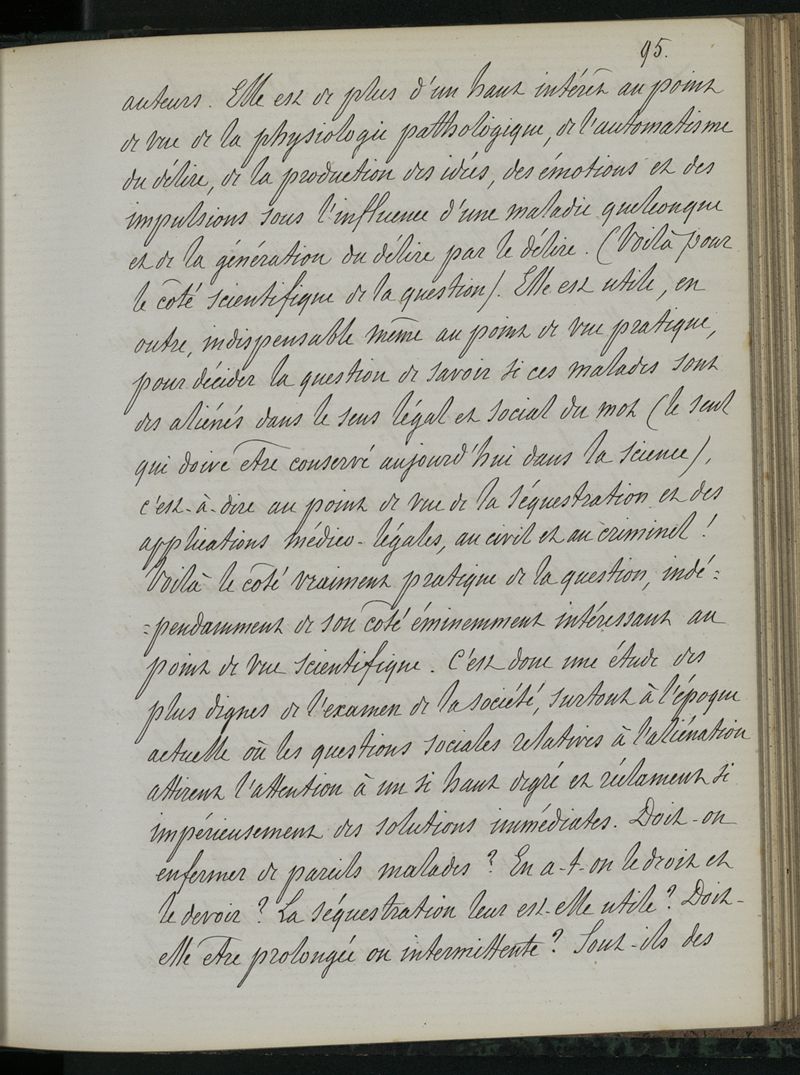 95.
auteurs. Elle est de plus d'un haut intérêt au point
de vue de la physiologie pathologique, de l'automatisme
du délire, de la production des idées, des émotions et des
impulsions sous l'influence d'une maladie quelconque
et de la génération du délire par le délire. (Voilà pour
le côté scientifique de la question). Elle est utile, en
outre, indispensable même au point de vue pratique,
pour décider la question de savoir si ces malades sont
des aliénés dans le sens légal et social du mot (le seul
qui doive être conservé aujourd'hui dans la science),
c'est-à-dire au point de vue de la séquestration et des
applications médico-légales, au civil et au criminel!
Voilà le côté vraiment pratique de la question, indé=
=pendamment de son côté éminemment intéressant au
point de vue scientifique. C'est donc une étude des
plus dignes de l'examen de la société, surtout à l'époque
actuelle où les questions sociales relatives à l'aliénation
attirent l'attention à un si haut degré et réclament si
impérieusement des solutions immédiates. Doit-on
enfermer de pareils malades? En a-t-on le droit et
le devoir? La séquestration leur est-elle utile? Doit-
elle être prolongée ou intermittente? Sont-ils des